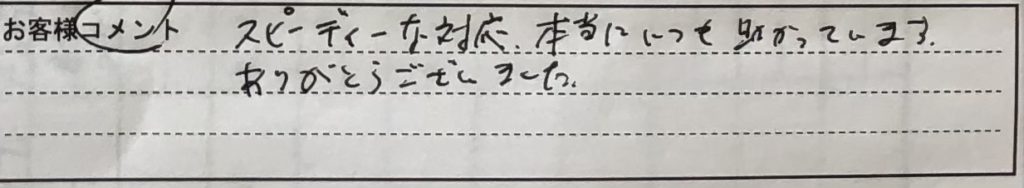 お客様コメント スピーディーな対応、本当にいつも助かっています。
ありがとうございました。